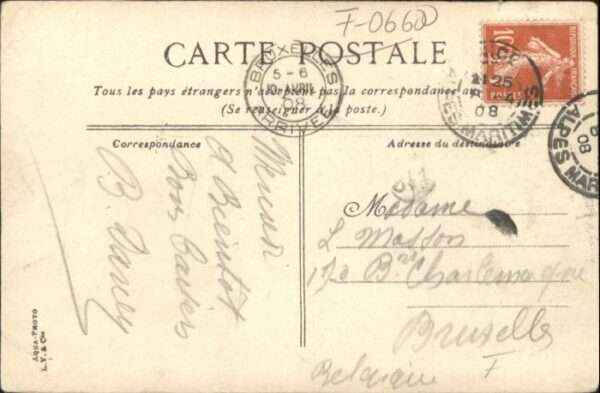 F-0660
CARTE POSTALE
Tous les pays étrangers n'acceptent pas la correspondance au
(Se renseigner à la poste.)
BRUXELLES
5-6
10 AVRIL
08
ARRIVEE
10
REPUBLIQUE FRANÇAISE
21 25
08
ALPES MARITMES
08
ALPES MAR
Correspondance
Adresse du destinataire
Merci
A Bientot
Bons Baisers
B.
Madame
L Masson
Bd Charlemagne
Bruxelles
Belgique F
AQUA-PHOTO
L. V. & Cie